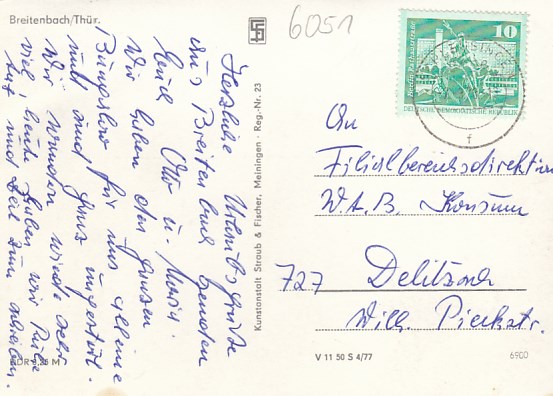 Breitenbach/Thür.
6051
10
Berlin, Rathausstraße
DEUTSCHE DEMOKRATISCHE REPUBLIK
Herzliche Urlaubsgrüße
aus Breitenbach senden
Euch Otto u. Maria.
Wir haben den ganzen
Bungalow für uns alleine
und sind ganz ungestört.
Wir wandern wieder sehr
viel, heute haben wir
und Zeit zum schreiben.
Kunstanstalt Straub & Fischer, Meiningen · Reg.-Nr. 23
An
Filialbereichsdirektion
W.t.B. Konsum
727 Delitzsch
Wilh. Pieckstr.
V 11 50 S 4/77
6900